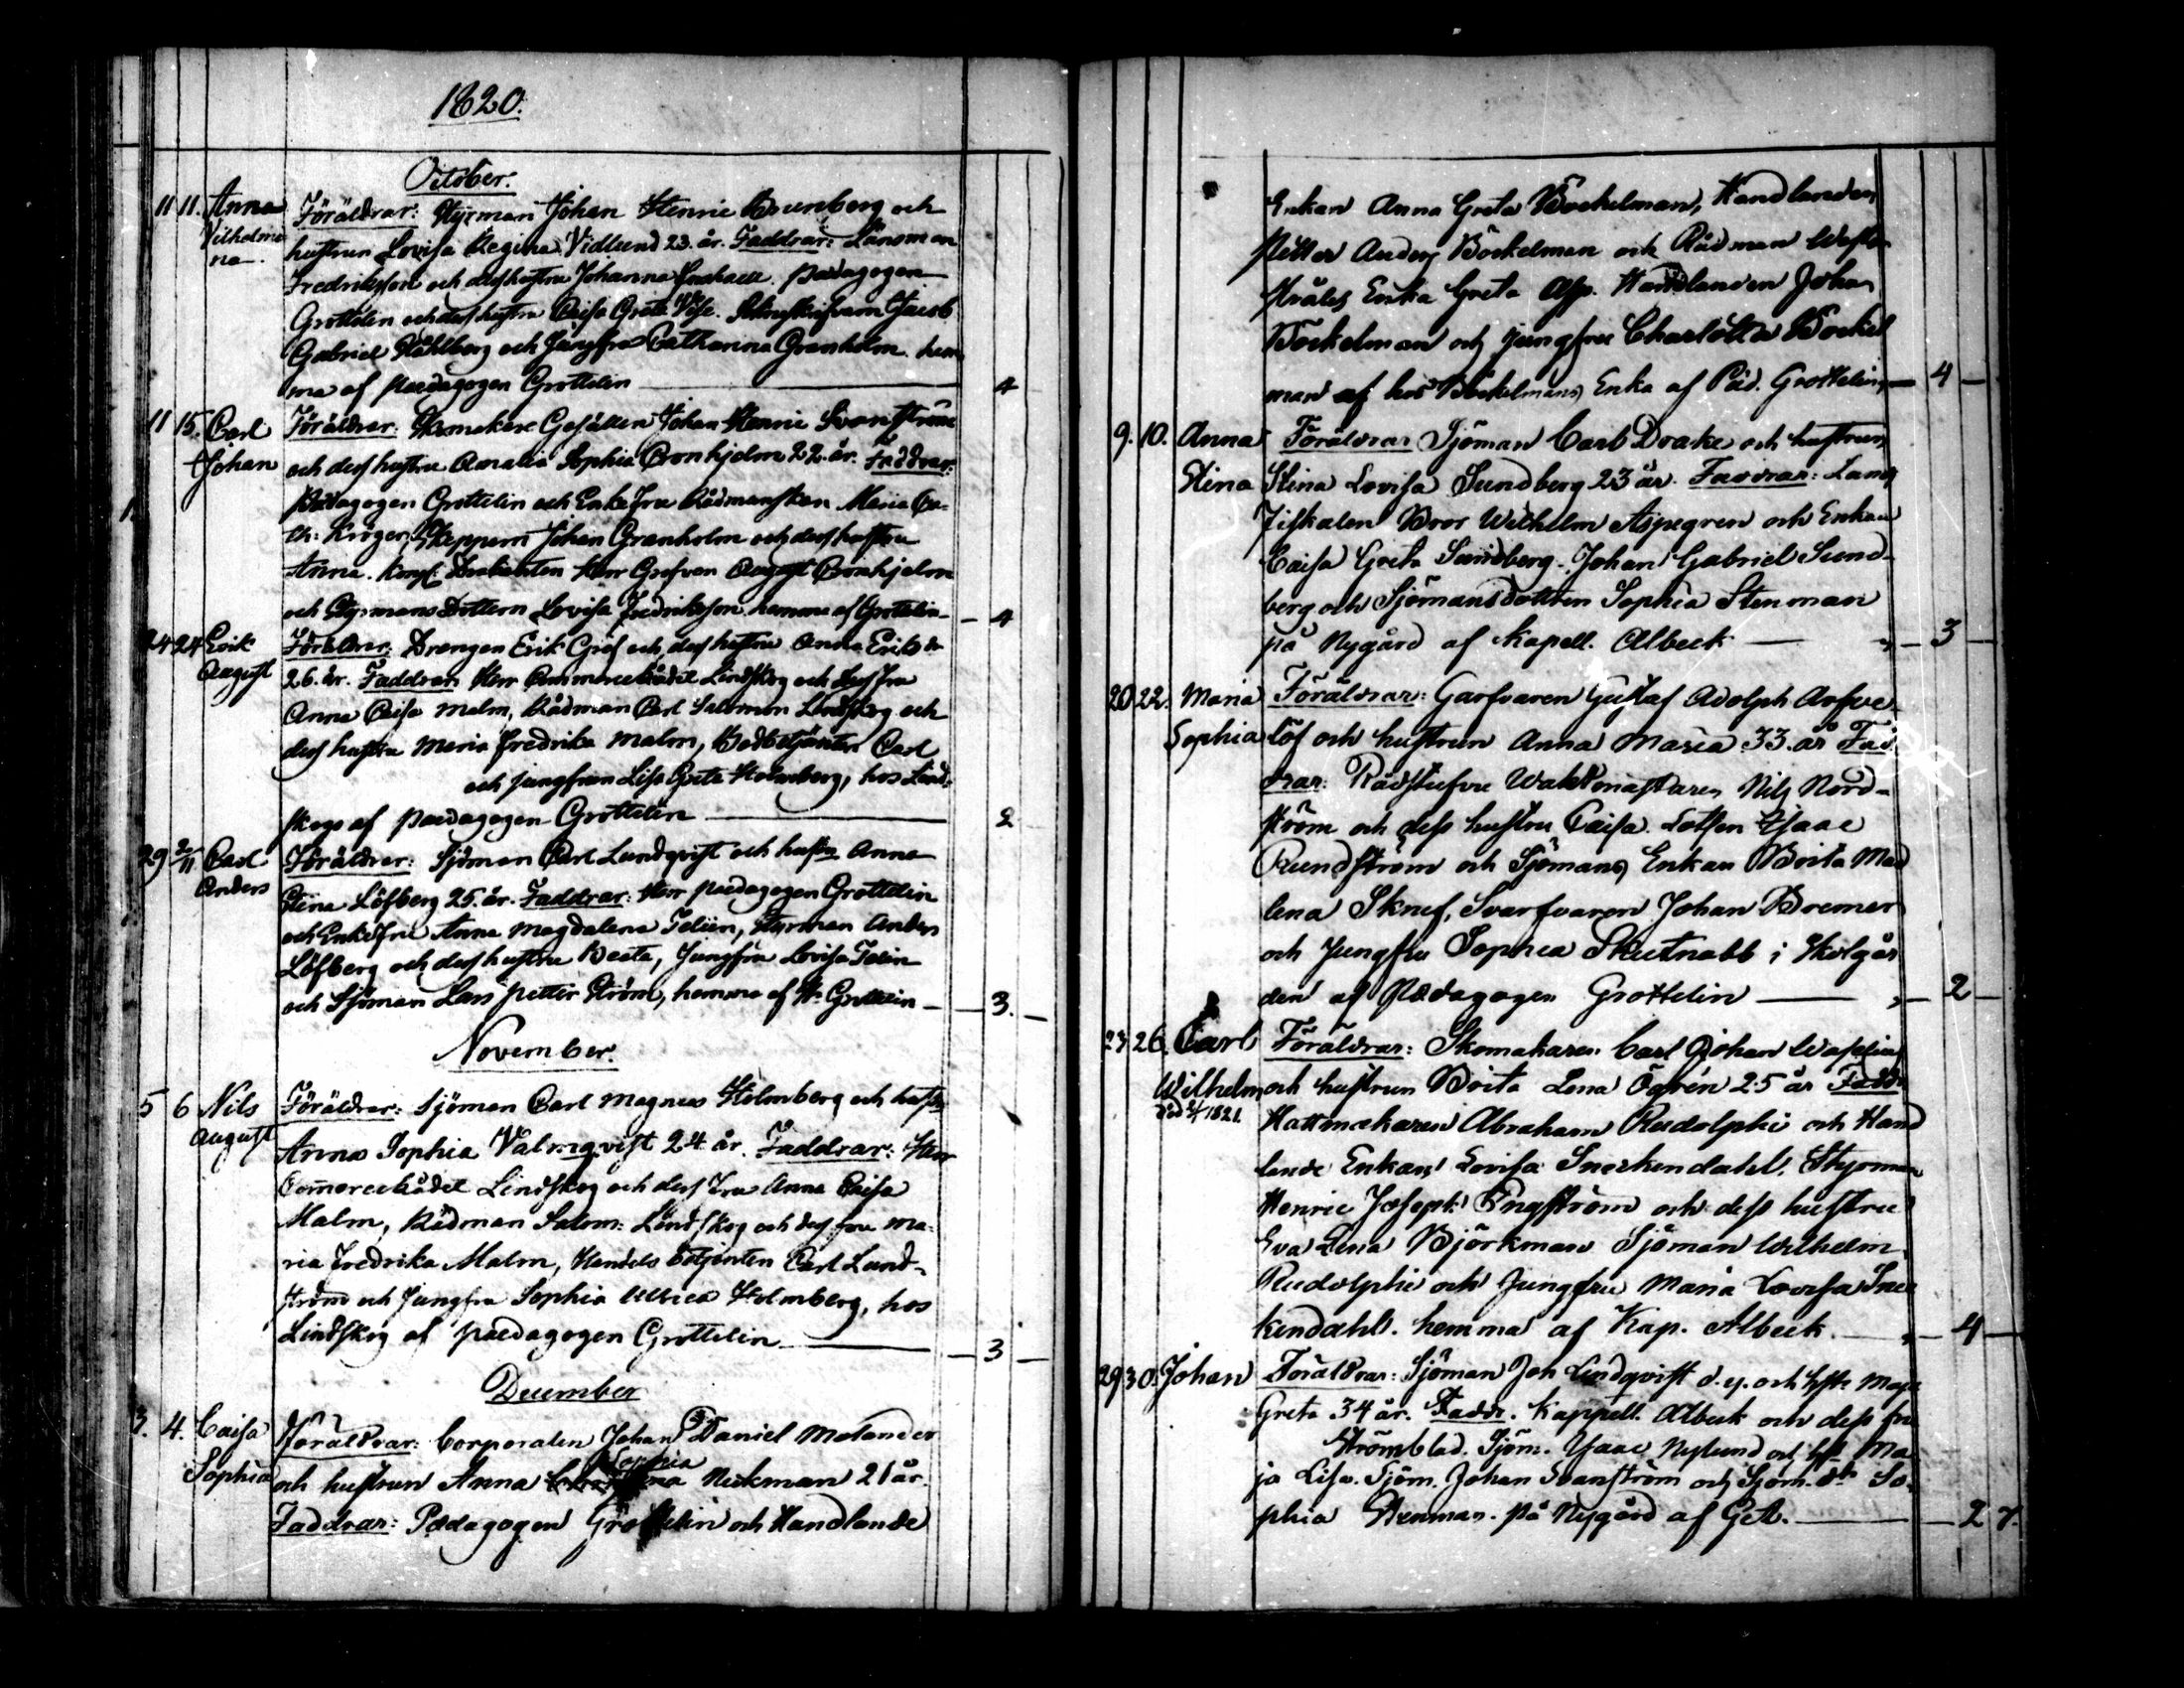 1820.
October.
11 11. Anna Vilhelmina. Föräldrar: Styrman Johan Henric Brunberg och
hustrun Lovisa Regina Vidlund 23. år. Faddrar: Länsman
Fredriksson och dess hustru Johanna pædagogen
Grottelin och dess hustru Caisa Greta Jacob
Gabriel Ståhlberg och Jungfru Catharina Granholm. hem
ma af pædagogen Grottelin 4
11 15. Carl Johan Föräldrar: Skomakare Gesällen Johan Henric Svanström
och dess hustru Amalia Sophia Cronhjelm 22. år. Faddrar:
Pædagogen Grottelin och Enkefru Rådmanskan Maria Ca-
th: Kröger, Skepparn Johan Granholm och dess hustru
Anna. Herr Grefven August Cronhjelm
och Styrmans Dottern Lovisa Fredriksson hemma af Grottelin 4
24 24 Erik August Föräldrar: Drengen Erik Gref och dess hustru Anna Eriks dr
26. år. Faddrar: Herr Commercerådet Lindskog och dess fru
Anna Caisa Malm, Rådman Carl Salomon Lindskog och
dess hustru Maria Fredrika Malm, Bodbetjänten Carl
och jungfrun Lisa Greta Holmberg, hos Lind-
skogs af pædagogen Grottelin 2
29 2/11 Carl Anders Föräldrar: Sjöman Carl Lundqvist och hustru Anna
Stina Löfberg 25. år. Faddrar: Herr pædagogen Grottelin
och Enkefru Anna Magdalena Telin, Styrman Anders
Löfberg och dess hustru Beata, Jungfru Lovisa Telin
och Sjöman Lars Petter Ström, hemma af Hr Grottelin 3.
November.
5 6 Nils August Föräldrar: Sjöman Carl Magnus Holmberg och hustru
Anna Sophia Valmqvist 24 år. Faddrar: Herr
Commercerådet Lindskog och dess Fru Anna Caisa
Malm, Rådman Salom: Lindskog och dess fru Ma-
ria Fredrika Malm, Handels betjenten Carl Lund-
ström och Jungfru Sophia Ulrica Holmberg, hos
Lindskog af pædagogen Grottelin 3
December
3. 4. Caisa Sophia Föräldrar: Corporalen Johan Daniel Molander
och hustrun Anna Sophia Neckman 21 år.
Faddrar: Pædagogen Grottelin och Handlande
Enkan Anna Greta Böckelman, Handlanden
Petter Anders Böckelman och Rådman
Enka Greta Asp. Handlanden Johan
Bockelman och jungfru Charlotta Bockel
man af hos Böckelmans Enka af Päd. Grottelin 4
9. 10. Anna Stina Föräldrar Sjöman Carl Drake och hustrun
Stina Lovisa Sundberg 23 år. Faddrar: Lands
Fiskalen Bror Wilhelm Aspegren och Enkan
Caisa Greta Sundberg. Johan Gabriel Sund-
berg och Sjömansdottren Sophia Stenman
på Nygård af Kapell. Albeck 3
20 22. Maria Sophia Föräldrar: Garfvaren Gustaf Adolph Arfve
löf och hustrun Anna Maria 33. år Fad
drar: Rådstufvu Waktmästaren Nils Nord-
ström och dess hustru Caisa. Lotsen Isaac
Rundström och Sjömans Enkan Brita Mad
lena Skruf, Svarfvaren Johan Bremer
och Jungfru Sophia Skutnabb i Skolgår
den af Pædagogen Grottelin 2
23 26. Carl Wilhelm Föräldrar: Skomakaren Carl Johan Waselius
och hustrun Brita Lena Ögrén 25 år Faddr
Hattmakaren Abraham Rudolphi och Hand
lande Enkan Lovisa Sneckendahl. Styrman
Henric Joseph Engström och dess hustru
Eva Lena Björkman Sjöman Wilhelm
Rudolphi och Jungfru Maria Lovisa Snec
kendahl. hemma af Kap. Albeck. 4
29 30. Johan Föräldrar: Sjöman Joh Lindqvist d.y. och hstr Maja
Greta 34 år. Faddr. Kappell. Albeck och dess fru
Strömblad. Sjöm. Isaac Nylund och hst Ma
ja Lisa. Sjöm. Johan Svanström och Sjöm. dr So-
phia Stenman. på Nygård af G.A. 2 7.